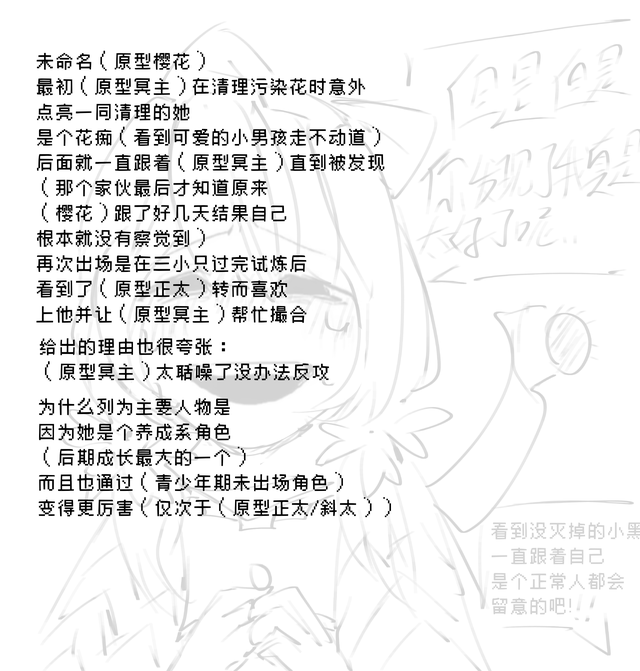 未命名（原型樱花）
最初（原型冥主）在清理污染花时意外
点亮一同清理的她
是个花痴（看到可爱的小男孩走不动道）
后面就一直跟着（原型冥主）直到被发现
（那个家伙最后才知道原来
（樱花）跟了好几天结果自己
根本就没有察觉到）
再次出场是在三小只过完试炼后
看到了（原型正太）转而喜欢
上他并让（原型冥主）帮忙撮合
给出的理由也很夸张：
（原型冥主）太聒噪了没办法反攻
为什么列为主要人物是
因为她是个养成系角色
（后期成长最大的一个）
而且也通过（青少年期未出场角色）
变得更厉害（仅次于（原型正太/斜太））
但是但是
你发现了真是
太好了呢..
看到没灭掉的小黑
一直跟着自己
是个正常人都会
留意的吧!!